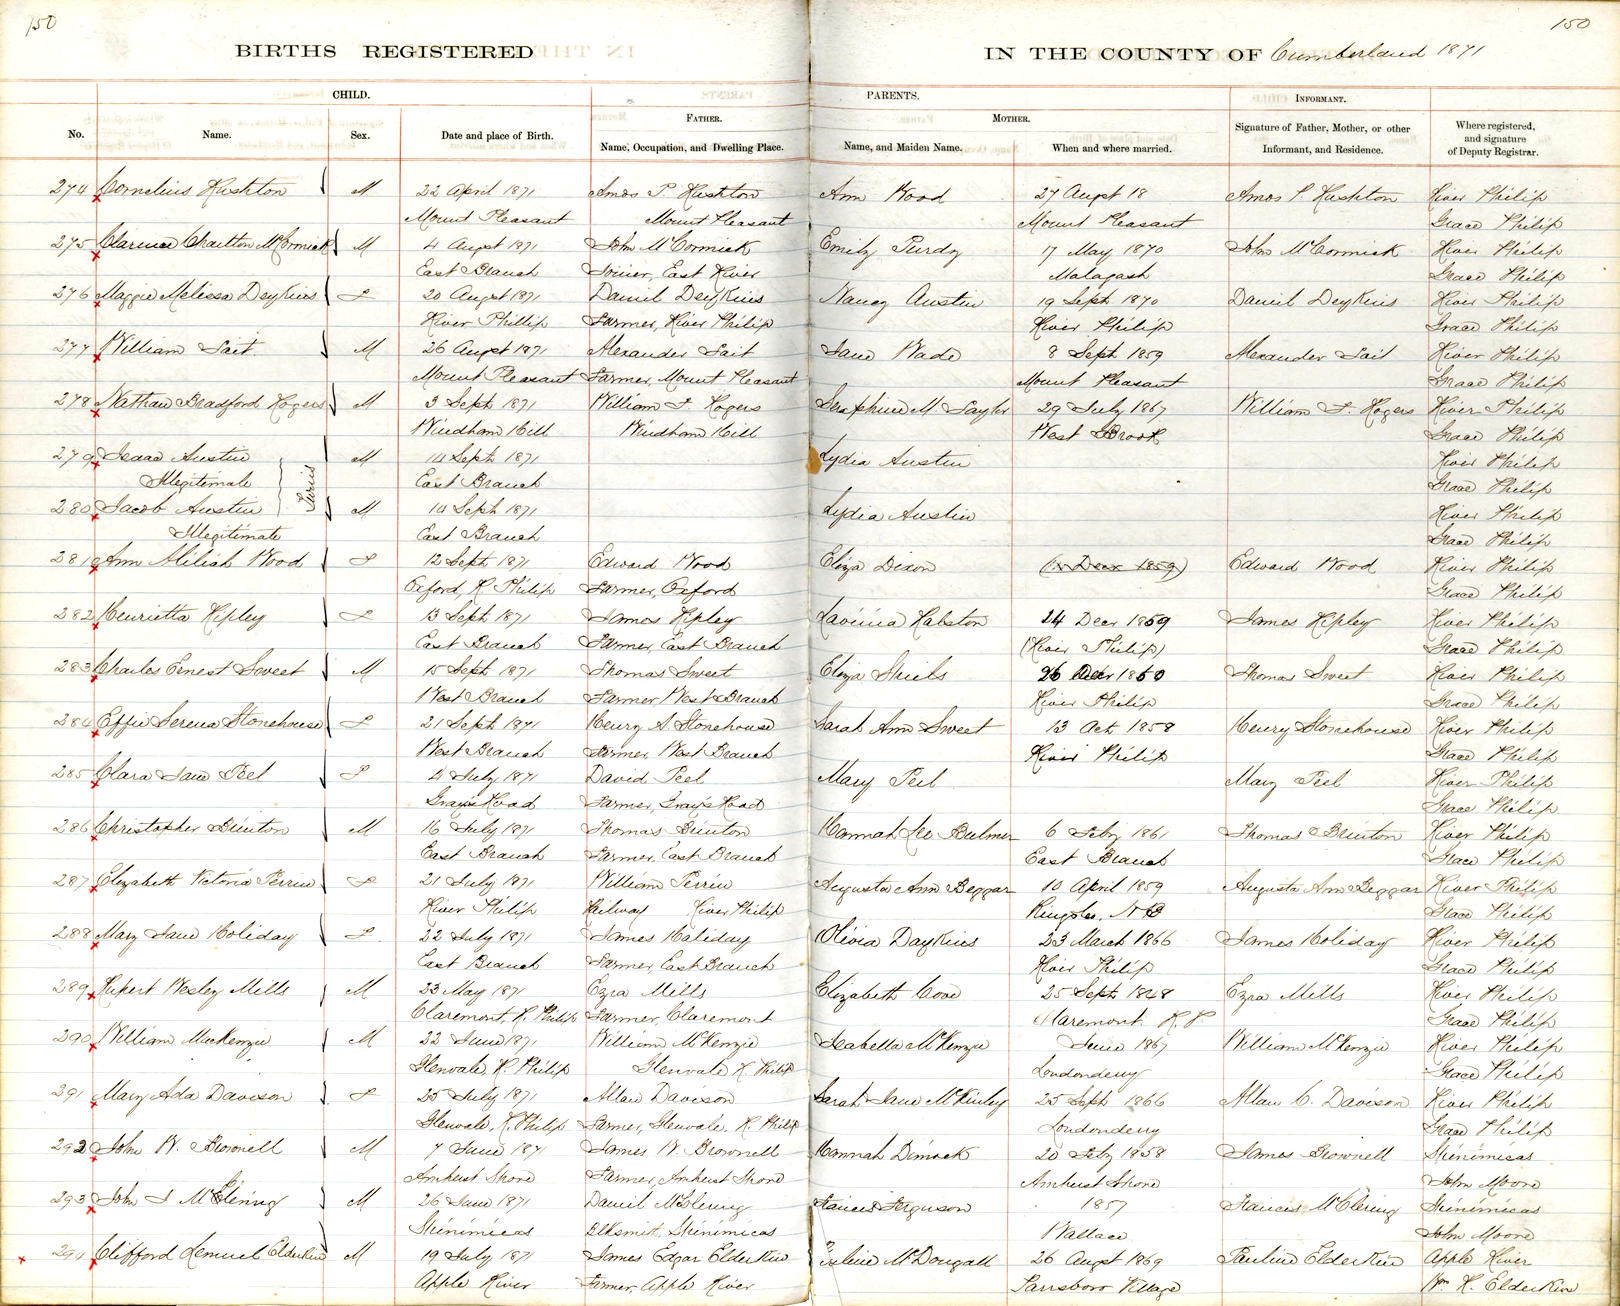 150
150
BIRTHS REGISTERED
IN THE COUNTY OF Cumberland 1871
CHILD.
PARENTS.
INFORMANT.
FATHER.
MOTHER.
No.
Name.
Sex.
Date and place of Birth.
Name, Occupation, and Dwelling Place.
Name, and Maiden Name.
When and where married.
Signature of Father, Mother, or other
Informant, and Residence.
Where registered,
and signature
of Deputy Registrar.
274 Cornelius Rushton M 22 April 1871 Amos P. Rushton Ann Wood 27 Augst 18 Amos P. Rushton River Philip
Mount Pleasant Mount Pleasant Mount Pleasant Grace Philip
275 Clarence Charlton McCormick M 4 Augst 1871 John McCormick Emily Purdy 17 May 1870 John McCormick River Philip
East Branch Joiner, East River Malagash Grace Philip
276 Maggie Melissa Deykins F 20 Augst 1871 Daniel Deykins Nancy Austin 19 Sept 1870 Daniel Deykins River Philip
River Phillip Farmer, River Philip River Philip Grace Philip
277 William Tait M 26 Augst 1871 Alexander Tait Jane Wade 8 Sept 1859 Alexander Tait River Philip
Mount Pleasant Farmer, Mount Pleasant Mount Pleasant Grace Philip
278 Nathan Bradford Rogers M 3 Sept 1871 William F. Rogers Seraphine M. Taylor 29 July 1867 William F. Rogers River Philip
Windham Hill Windham Hill West Brook Grace Philip
279 Isaac Austin M 14 Sept 1871 Lydia Austin River Philip
Illegitimate Twins East Branch Grace Philip
280 Jacob Austin M 14 Sept 1871 Lydia Austin River Philip
Illegitimate East Branch Grace Philip
281 Ann Wood F 12 Sept 1871 Edward Wood Eliza Dixon Edward Wood River Philip
Oxford, R. Philip Farmer, Oxford Grace Philip
282 Henrietta Ripley F 13 Sept 1871 James Ripley Lavinia Ralston 24 Decr 1859 James Ripley River Philip
East Branch Farmer, East Branch (River Philip) Grace Philip
283 Charles Ernest Sweet M 15 Sept 1871 Thomas Sweet Eliza Shiels 26 Decr 1860 Thomas Sweet River Philip
West Branch Farmer West Branch River Philip Grace Philip
284 Effie Serena Stonehouse F 21 Sept 1871 Henry S. Stonehouse Sarah Ann Sweet 13 Oct 1858 Henry Stonehouse River Philip
West Branch Farmer, West Branch River Philip Grace Philip
285 Clara Jane Peel F 4 July 1871 David Peel Mary Peel Mary Peel River Philip
Gray's Road Farmer, Gray's Road Grace Philip
286 Christopher Brinton M 16 July 1871 Thomas Brinton Hannah Bulmer 6 Feby 1861 Thomas Brinton River Philip
East Branch Farmer, East Branch East Branch Grace Philip
287 Elizabeth Victoria Perrin F 21 July 1871 William Perrin Augusta Ann Beggar 10 April 1859 Augusta Ann Beggar River Philip
River Philip Railway River Philip NB Grace Philip
288 Mary Jane Holiday F 22 July 1871 James Holiday Olivia Daykins 23 March 1866 James Holiday River Philip
East Branch Farmer, East Branch River Philip Grace Philip
289 Rupert Wesley Mills M 23 May 1871 Ezra Mills Elizabeth Cove 25 Sept 1848 Ezra Mills River Philip
Claremont, R. Philip Farmer, Claremont Claremont R. P. Grace Philip
290 William MacKenzie M 22 June 1871 William McKenzie Isabella McKenzie June 1867 William McKenzie River Philip
Glenvale R. Philip Glenvale R. Philip Londonderry Grace Philip
291 Mary Ada Davison F 25 July 1871 Allan Davison Sarah Jane McKinley 25 Sept 1866 Allan C. Davison River Philip
Glenvale, R. Philip Farmer, Glenvale, R. Philip Londonderry Grace Philip
292 John W. Brownell M 7 June 1871 James W. Brownell Hannah Dimock 20 Feby 1858 James Brownell Shinimicas
Amherst Shore Farmer, Amherst Shore Amherst Shore John Moore
293 John J McGlening M 26 June 1871 Daniel McGlening Francis Ferguson 1857 Francis McGlening Shinimicas
Shinimicas Blksmith, Shinimicas Wallace John Moore
294 Clifford Lemuel Elderkin M 19 July 1871 James Edgar Elderkin McDougall 26 Augst 1869 Pauline Elderkin Apple River
Apple River Farmer, Apple River Parrsboro Village Wm R. Elderkin